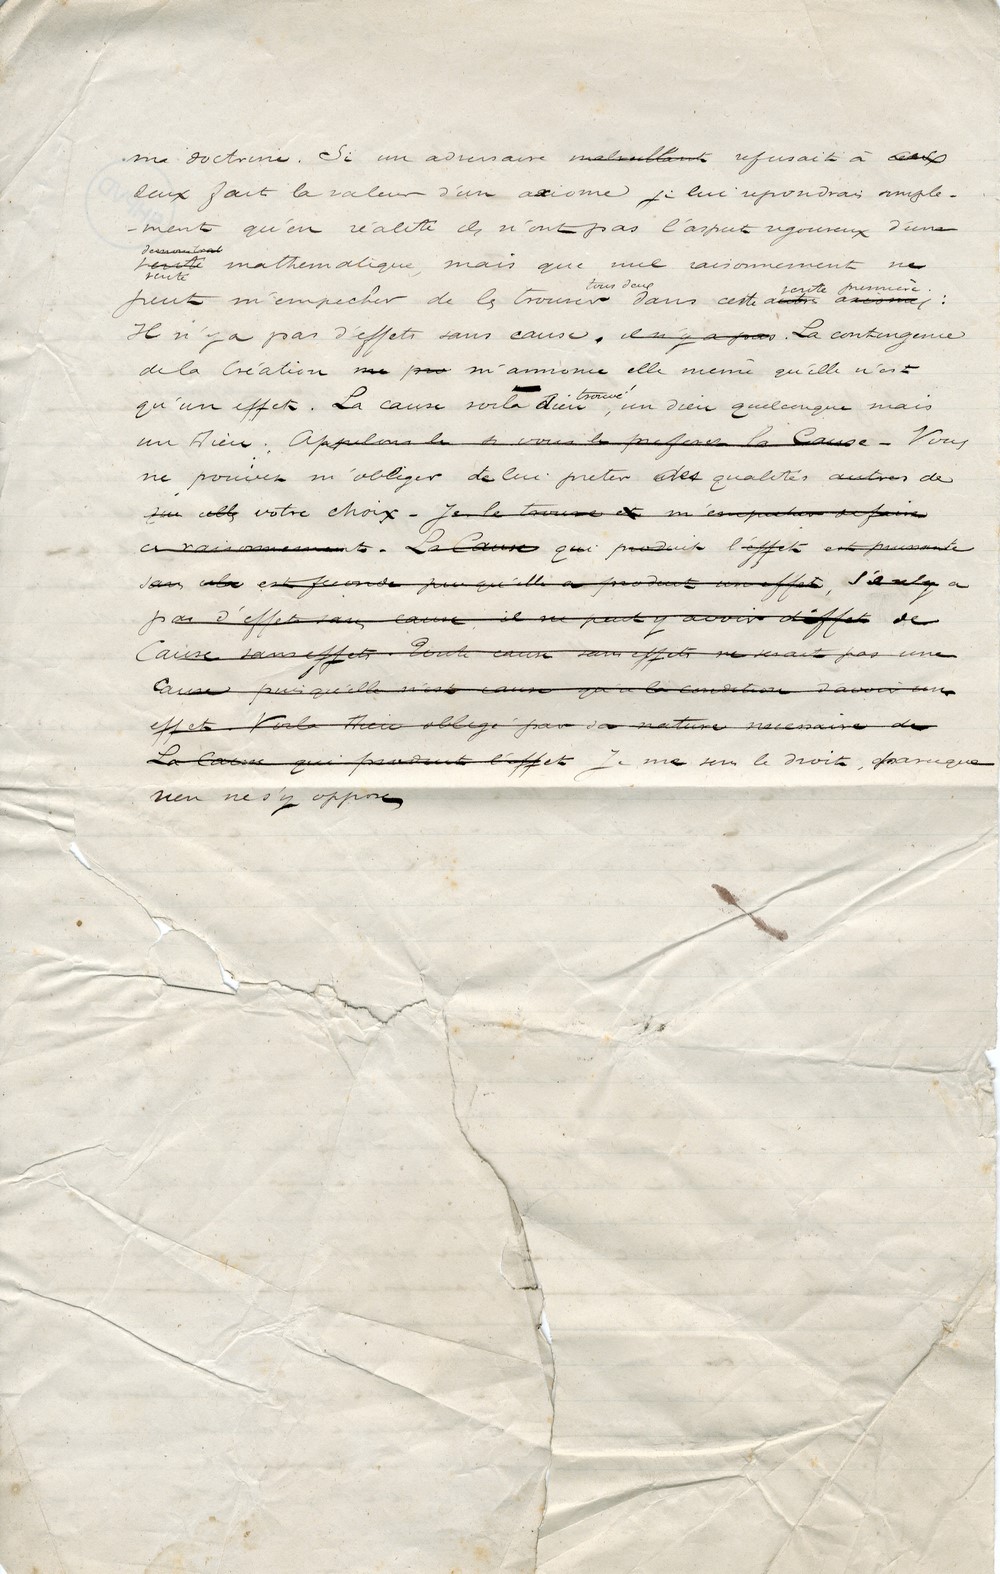 ma doctrine. Si un adversaire malveillant refusait à ces
deux fait la valeur d'un axiome je lui repondrai simple-
-ment qu'en réalité ils n'ont pas l'aspect rigoureux d'une
demonstrat
verité mathematique, mais que nul raisonnement ne
verité
tous deux verite première.
peut m'empecher de les trouver dans cette autre axiome :
Il n'y a pas d'effets sans cause. il n'y a pas. La contingence
de la Création me m'annonce elle même qu'elle n'est
trouvé
qu'un effet. La cause voila Dieu, un dieu quelconque mais
un Dieu. Appelons le si vous le preferez la Cause - Vous
ne pouvez m'obliger de lui preter des qualités autres de
votre choix - Je le trouve et m'empecher de faire
ce raisonnement. La Cause qui produit l'effet est puissante
est feconde puisqu'elle a produit un effet, s'il n'y a
pas d'effet sans cause il ne peut y avoir d'effet de
Cause sans effets. Toute cause sans effets ne serait pas une
Cause puisqu'elle n'est cause qu'a la condition d'avoir un
effet. Voila Dieu obligé par sa nature necessaire de
La Cause qui produit l'effet Je me sens le droit, parceque
rien ne s'y oppose,